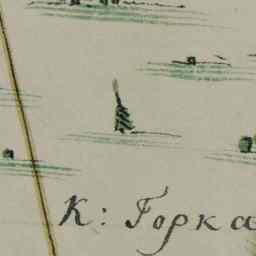 К: Горка